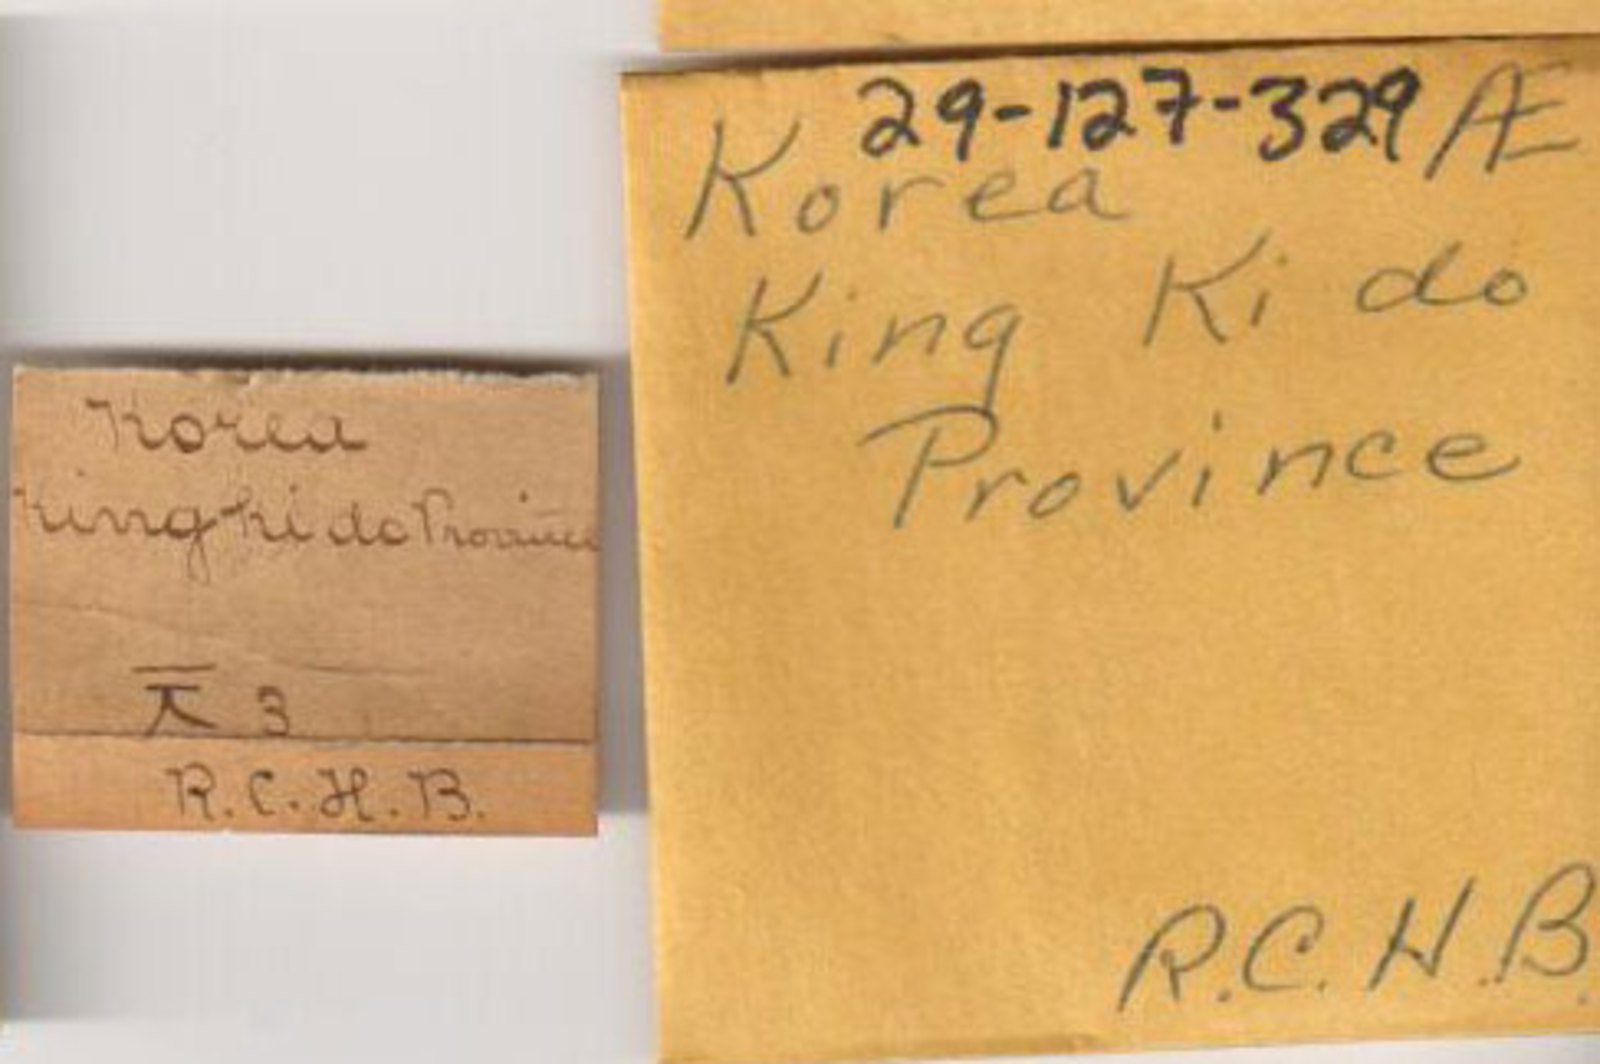 Korea
King Ki do Province
R.C.H.B.
29-127-329 Æ
Korea
King Ki do
Province
R.C.H.B.